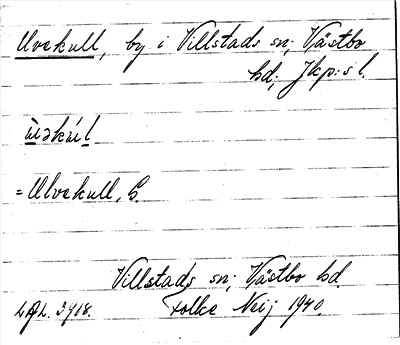 Uvekull, by i Villstads sn; Västbo
hd, Jkp:s l.
= Ulvekull, G.
Villstads sn; Västbo hd.
Folke Neij 1940.